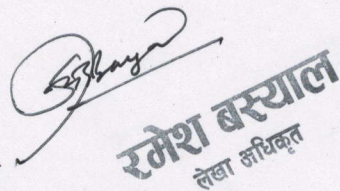 रमेश बस्याल
लेखा अधिकृत